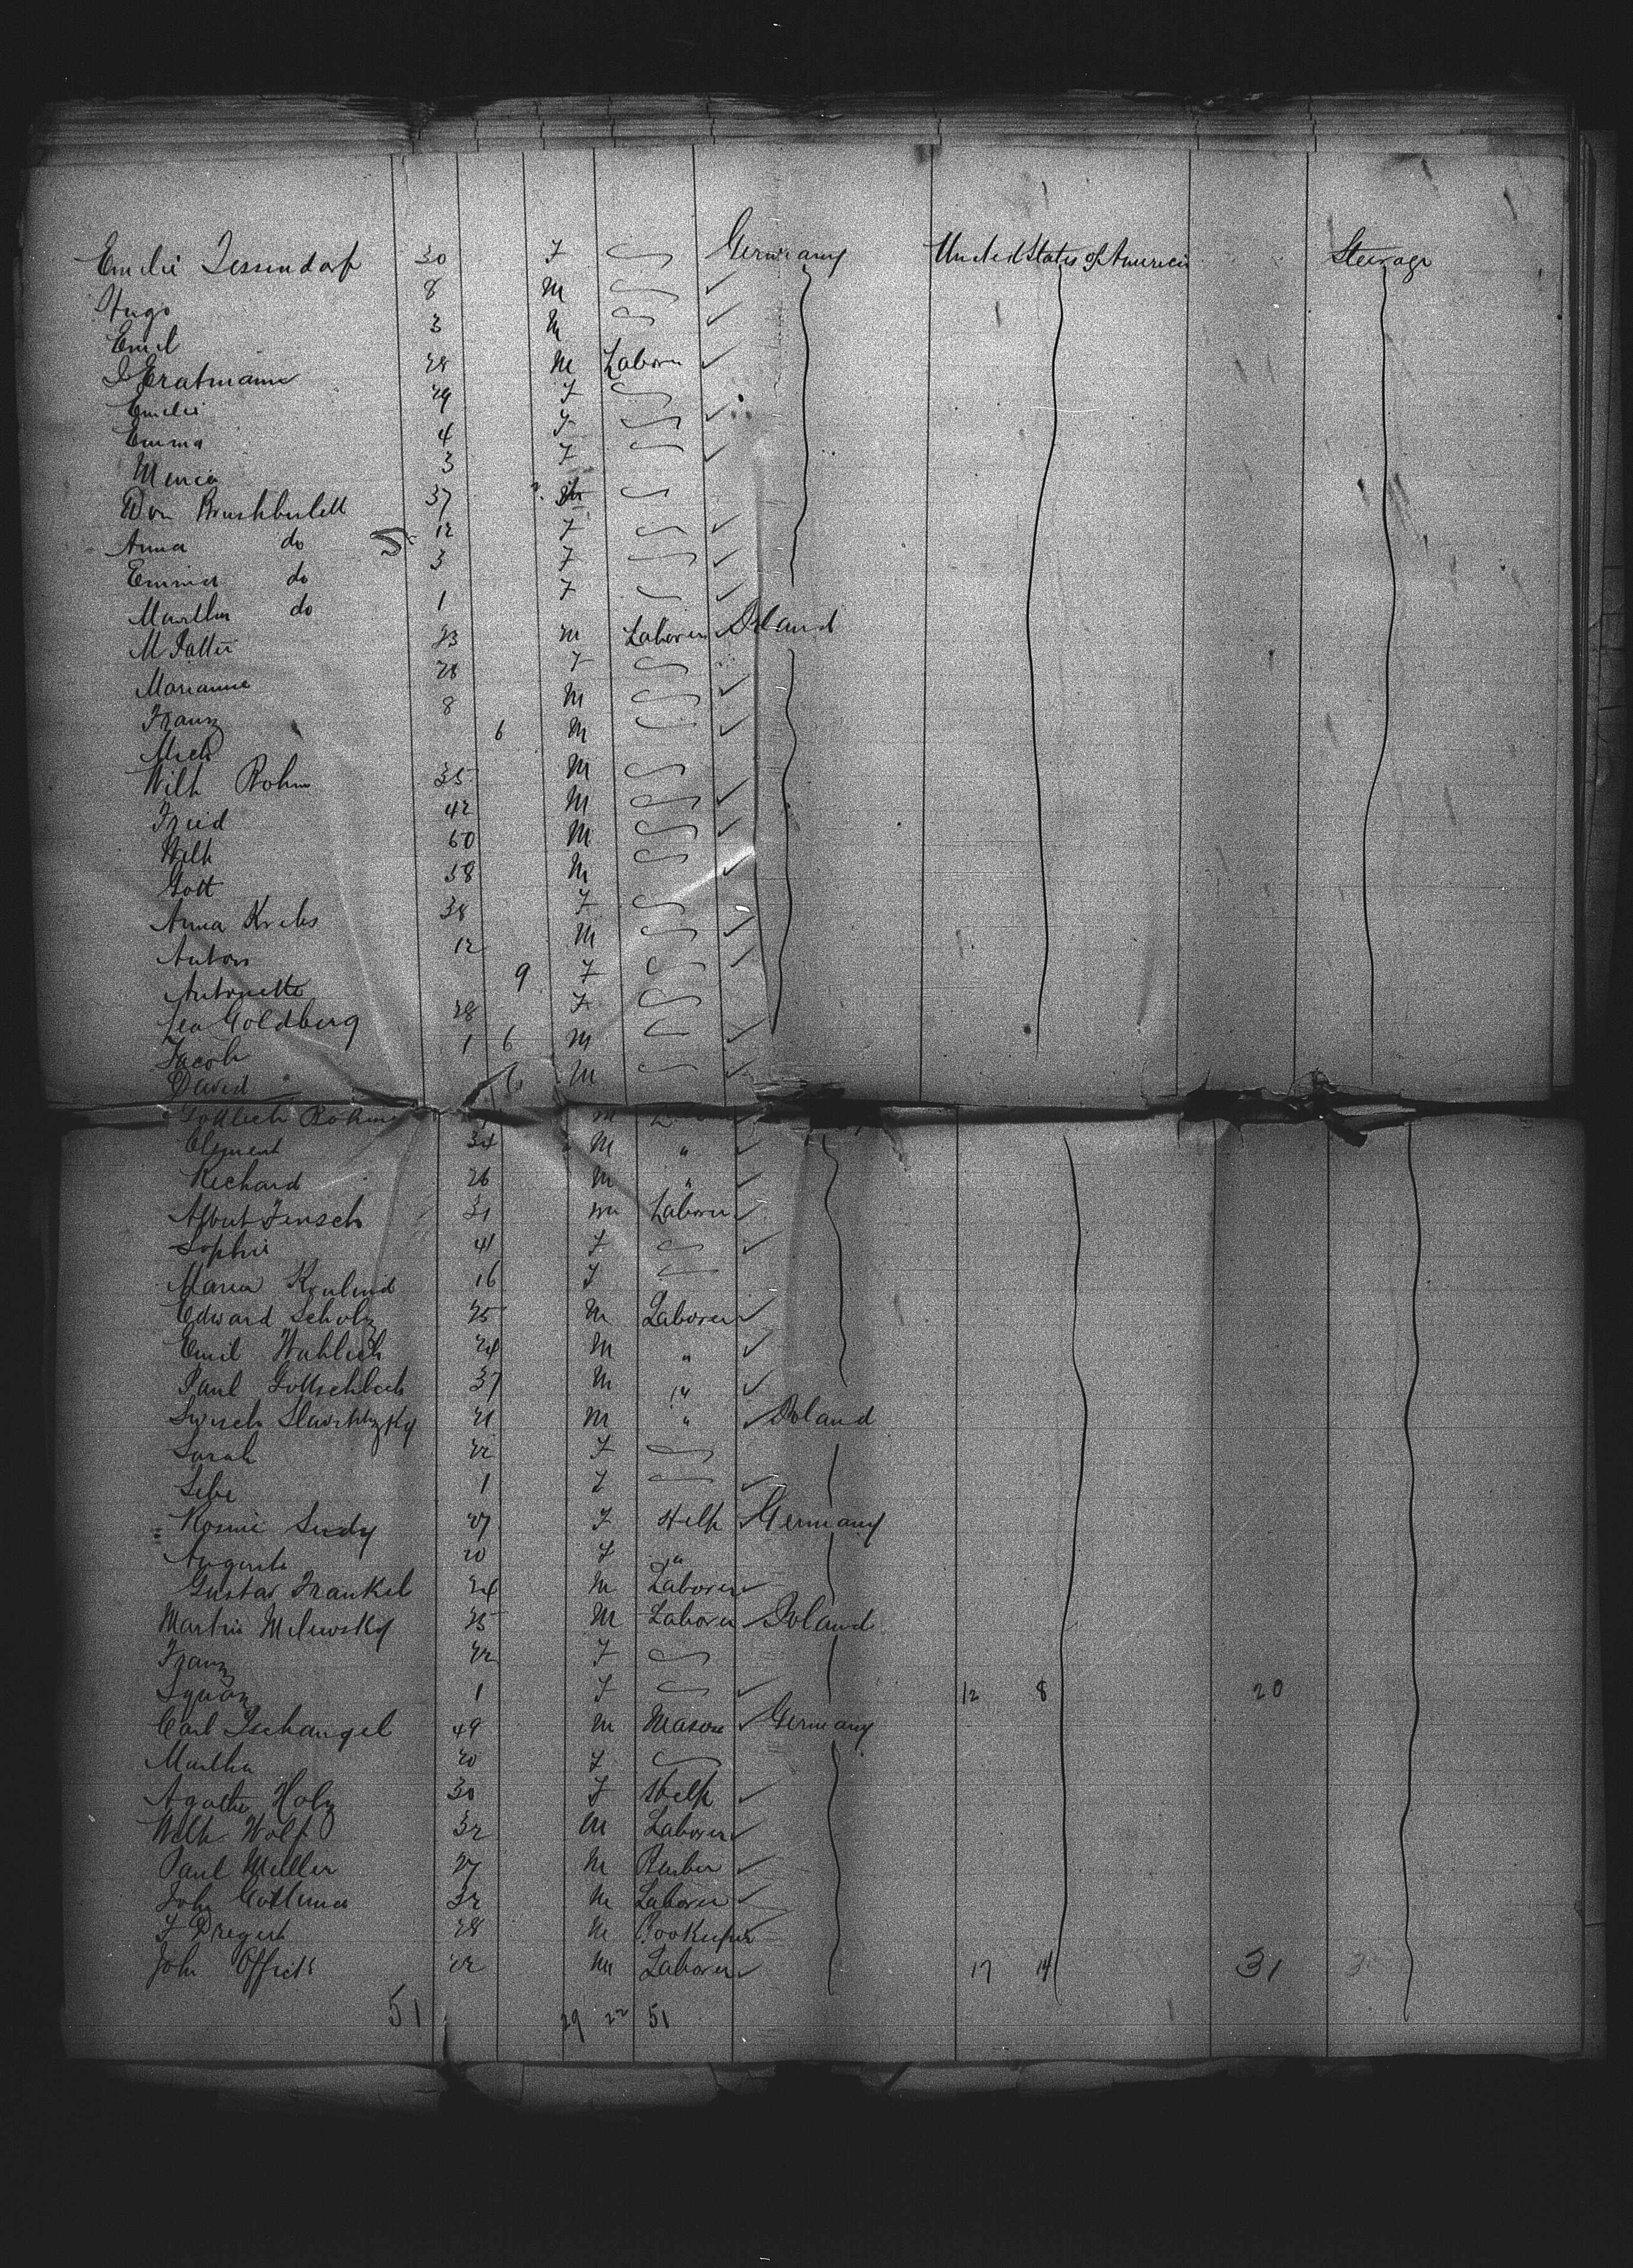 Emilie Jessendorf 30 F Germany United States of America Steerage
Hugo 8 M
Emil 3 M
Eratmann 28 M Laborer
Emilie 29 F
Emma 4 F
3 F
37
Anna do 12 F
Emma do 3 F
Martha do 1 F
M 23 M Laborer Poland
Marianne 28 F
Franz 8 M
Mich 6 M
Wilh Bohm 35 M
Fried 42 M
Wilh 60 M
Gott 38 M
Anna Krebs 38 F
Anton 12 M
Antonette 9 F
Lea Goldberg 28 F
Jacob 1 6 M
David 6 M
Gottlieb Bohm M
Clement 34 M "
Richard 26 M "
Albert Jensch 31 M Laborer
Sophie 41 F
Maria 16 F
Edward Scholz 25 M Laborer
Emil Wahlich 24 M "
Paul Gottschlich 37 M "
21 M " Poland
Sarah 22 F
1 F
Rosine Sudy 27 F Help Germany
Auguste 20 F "
Gustav Frankel 24 M Laborer
Martin Milewsky 25 M Laborer Poland
Franz 22 F
1 F 12 8 20
Carl Tschangel 49 M Mason Germany
Martha 20 F
Agathe Holz 30 F Help
Wilh Wolf 32 M Laborer
Paul Muller 27 M
John 32 M Laborer
F Dregert 28 M Bookeeper
John 22 M Laborer 17 14 31
51 29 22 51